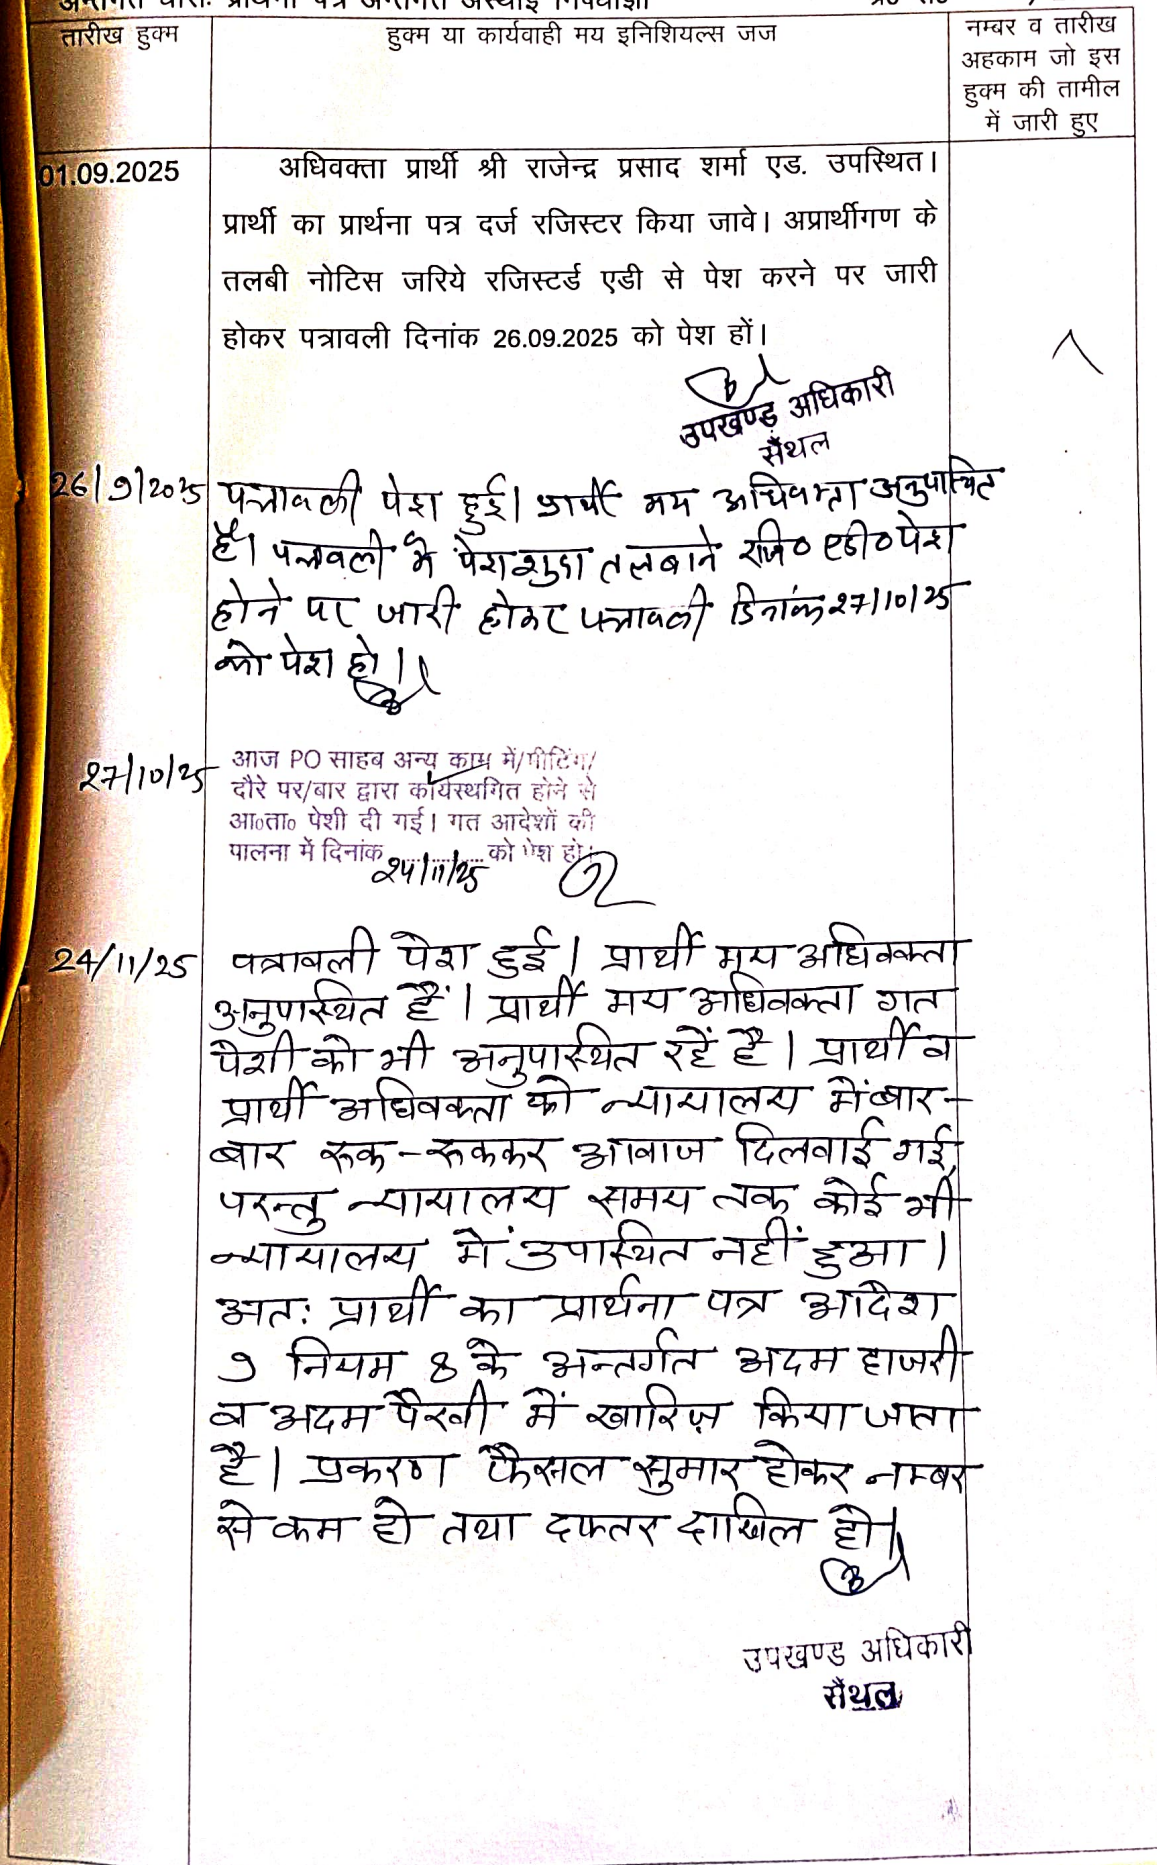 अन्तर्गत धाराः प्रार्थना पत्र अन्तर्गत अस्थाई निषेधाज्ञा
तारीख हुक्म
हुक्म या कार्यवाही मय इनिशियल्स जज
नम्बर व तारीख
अहकाम जो इस
हुक्म की तामील
में जारी हुए
01.09.2025
अधिवक्ता प्रार्थी श्री राजेन्द्र प्रसाद शर्मा एड. उपस्थित।
प्रार्थी का प्रार्थना पत्र दर्ज रजिस्टर किया जावे। अप्रार्थीगण के
तलबी नोटिस जरिये रजिस्टर्ड एडी से पेश करने पर जारी
होकर पत्रावली दिनांक 26.09.2025 को पेश हों।
उपखण्ड अधिकारी
सैंथल
26/9/2025 पत्रावली पेश हुई। प्रार्थी मय अधिवक्ता अनुपस्थित
है। पत्रावली में पेशशुदा तलबाने रजि० एडी० पेश
होने पर जारी होकर पत्रावली दिनांक 27/10/25
को पेश हो।
27/10/25
आज PO साहब अन्य काम में/मीटिंग/
दौरे पर/बार द्वारा कार्यस्थगित होने से
आ०ता० पेशी दी गई। गत आदेशों की
पालना में दिनांक 24/11/25 को पेश हो।
24/11/25 पत्रावली पेश हुई। प्रार्थी मय अधिवक्ता
अनुपस्थित हैं। प्रार्थी मय अधिवक्ता गत
पेशी को भी अनुपस्थित रहें है। प्रार्थी व
प्रार्थी अधिवक्ता को न्यायालय में बार-
बार रूक-रूककर आवाज दिलवाई गई,
परन्तु न्यायालय समय तक कोई भी
न्यायालय में उपस्थित नहीं हुआ।
अतः प्रार्थी का प्रार्थना पत्र आदेश
9 नियम 8 के अन्तर्गत अदम हाजरी
व अदम पैरवी में खारिज़ किया जाता
है। प्रकरण फैसल सुमार होकर नम्बर
से कम हो तथा दफ्तर दाखिल हो।
उपखण्ड अधिकारी
सैंथल